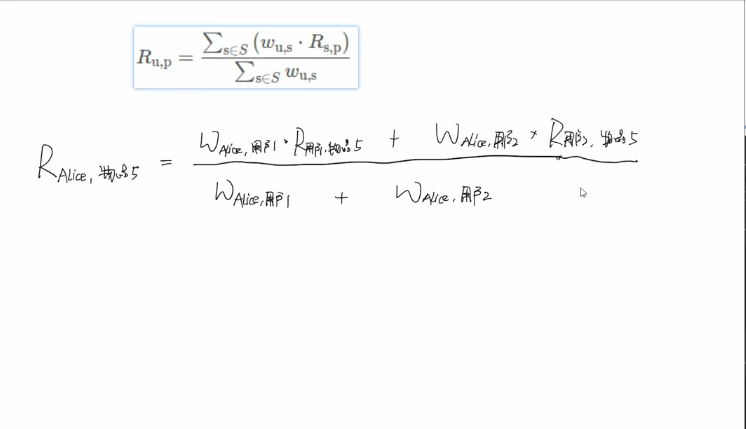 R_{u,p} = \frac{\sum_{s∈S} (w_{u,s} · R_{s,p})}{\sum_{s∈S} w_{u,s}}
R_{Alice, 物品5} = \frac{W_{Alice, 用户1} · R_{用户1, 物品5} + W_{Alice, 用户2} × R_{用户2, 物品5}}{W_{Alice, 用户1} + W_{Alice, 用户2}}